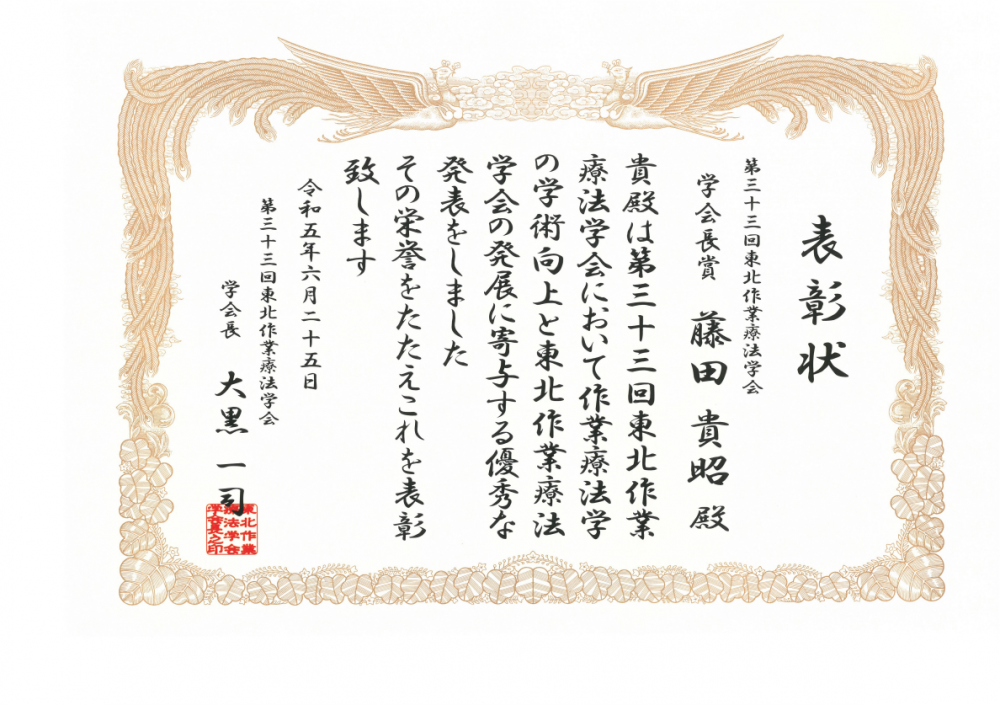 表彰状
第三十三回東北作業療法学会
学会長賞 藤田 貴昭 殿
貴殿は第三十三回東北作業
療法学会において作業療法学
の学術向上と東北作業療法
学会の発展に寄与する優秀な
発表をしました
その栄誉をたたえこれを表彰
致します
令和五年六月二十五日
第三十三回東北作業療法学会
学会長 大黒 一司
東北作業
療法学会
学会長之印